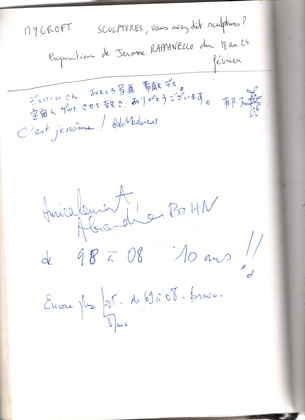 MYCROFT SCULPTURES, vous avez dit sculptures?
Exposition de Jerome RAPPANELLO du 18 au 24
février
ジェロームさん おもしろ写真 素敵です。
宇宙人 ゲット させて頂き ありがとうございます。
C'est jerôme !
Amicalement
Alexandre BOHN
de 98 à 08 10 ans !!
Encore plus fort. de 69 à 08. bravo.